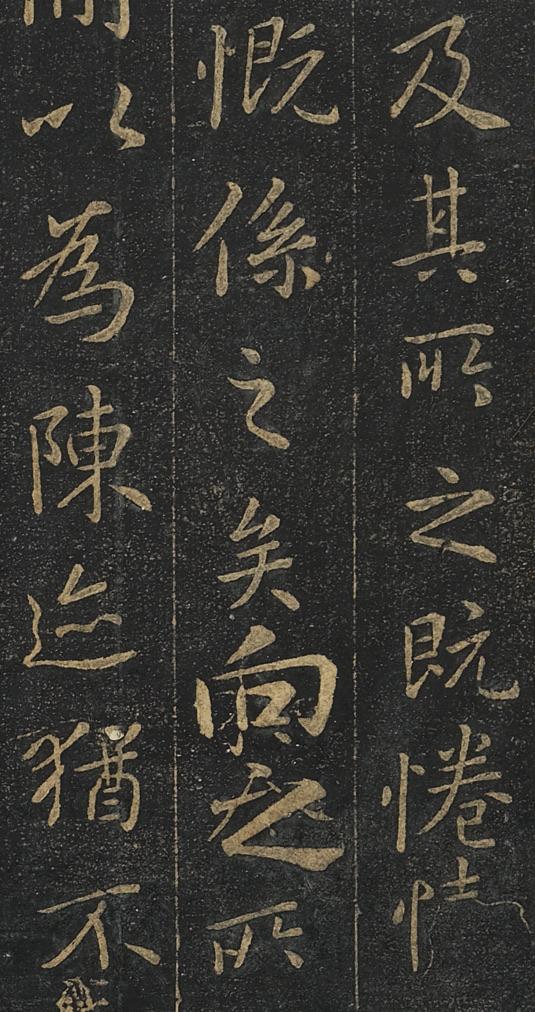 及其所之既惓情
慨係之矣向之所
以為陳迹猶不